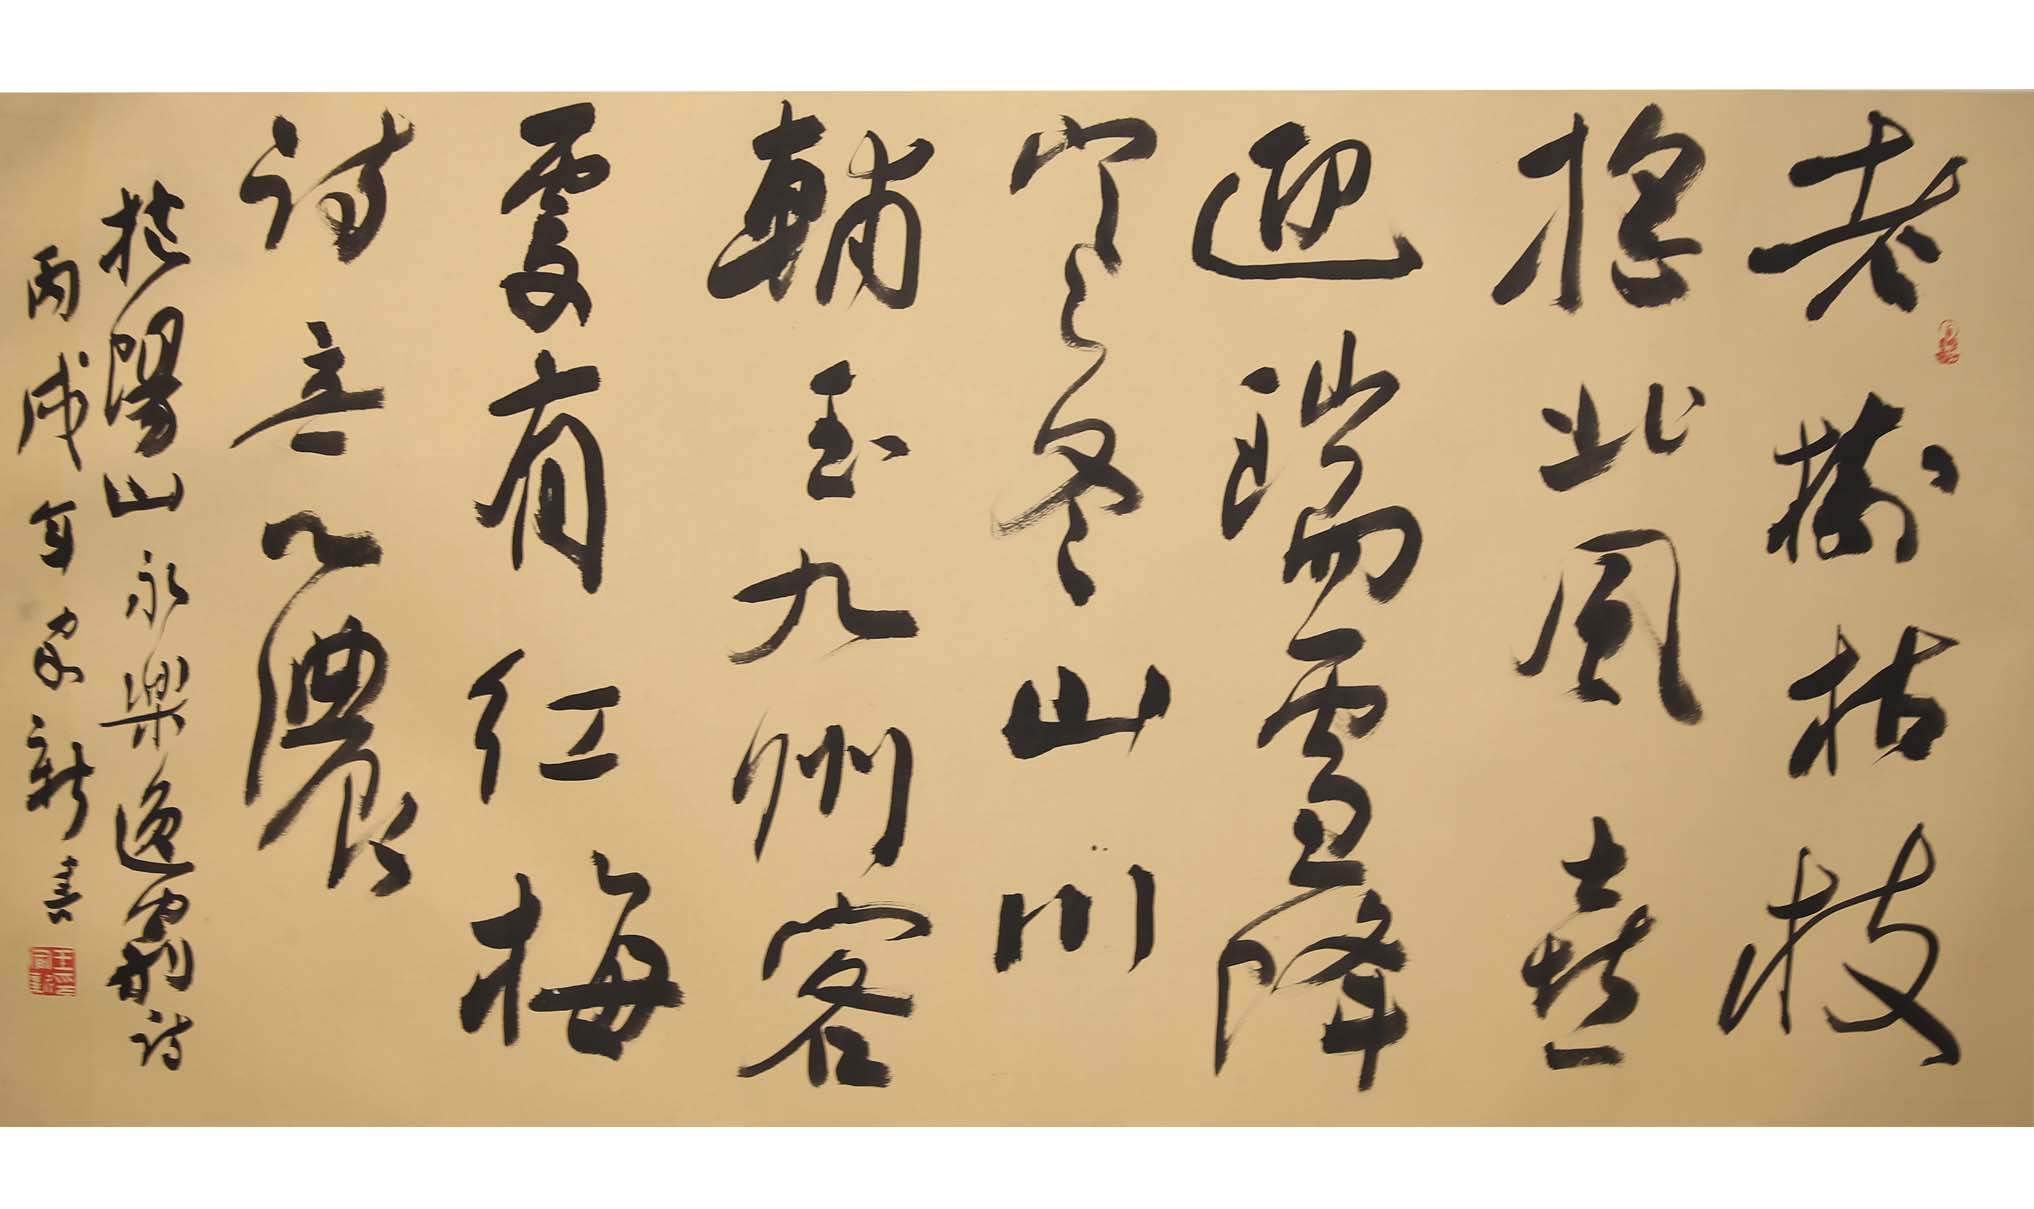 老樹枯枝
搖北風喜
迎瑞雪降
寒冬山川
輔玉九州客
有紅梅
詩意濃
陽山永樂逸詩
丙戌年家新書